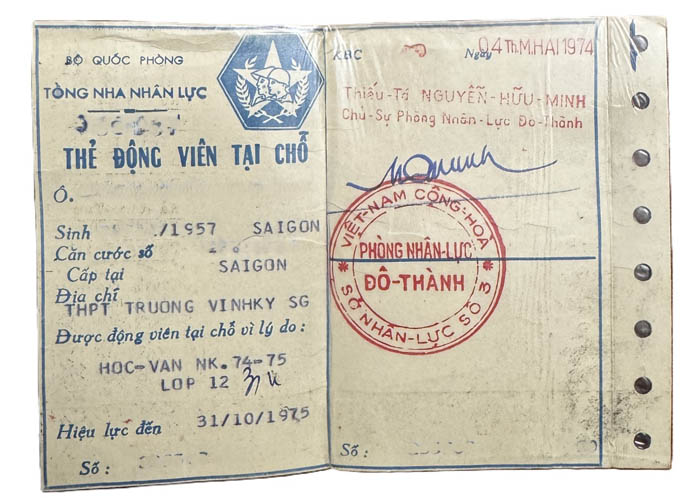 BỘ QUỐC PHÒNG
TỔNG NHA NHÂN LỰC
THẺ ĐỘNG VIÊN TẠI CHỖ
Ô.
Sinh /1957 SAIGON
Căn cước số
Cấp tại SAIGON
Địa chỉ
THPT TRUONG VINHKY SG
Được động viên tại chỗ vì lý do :
HOC-VAN NK.74-75
LOP 12
Hiệu lực đến 31/10/1975
Số :
KBC Ngày 04 Th.M.HAI 1974
Thiếu-Tá NGUYỄN-HỮU-MINH
Chủ-Sự Phòng Nhân-Lực Đô-Thành
VIỆT-NAM CỘNG-HOÀ
PHÒNG NHÂN-LỰC
ĐÔ-THÀNH
SỞ NHÂN-LỰC SỐ 3
Số :